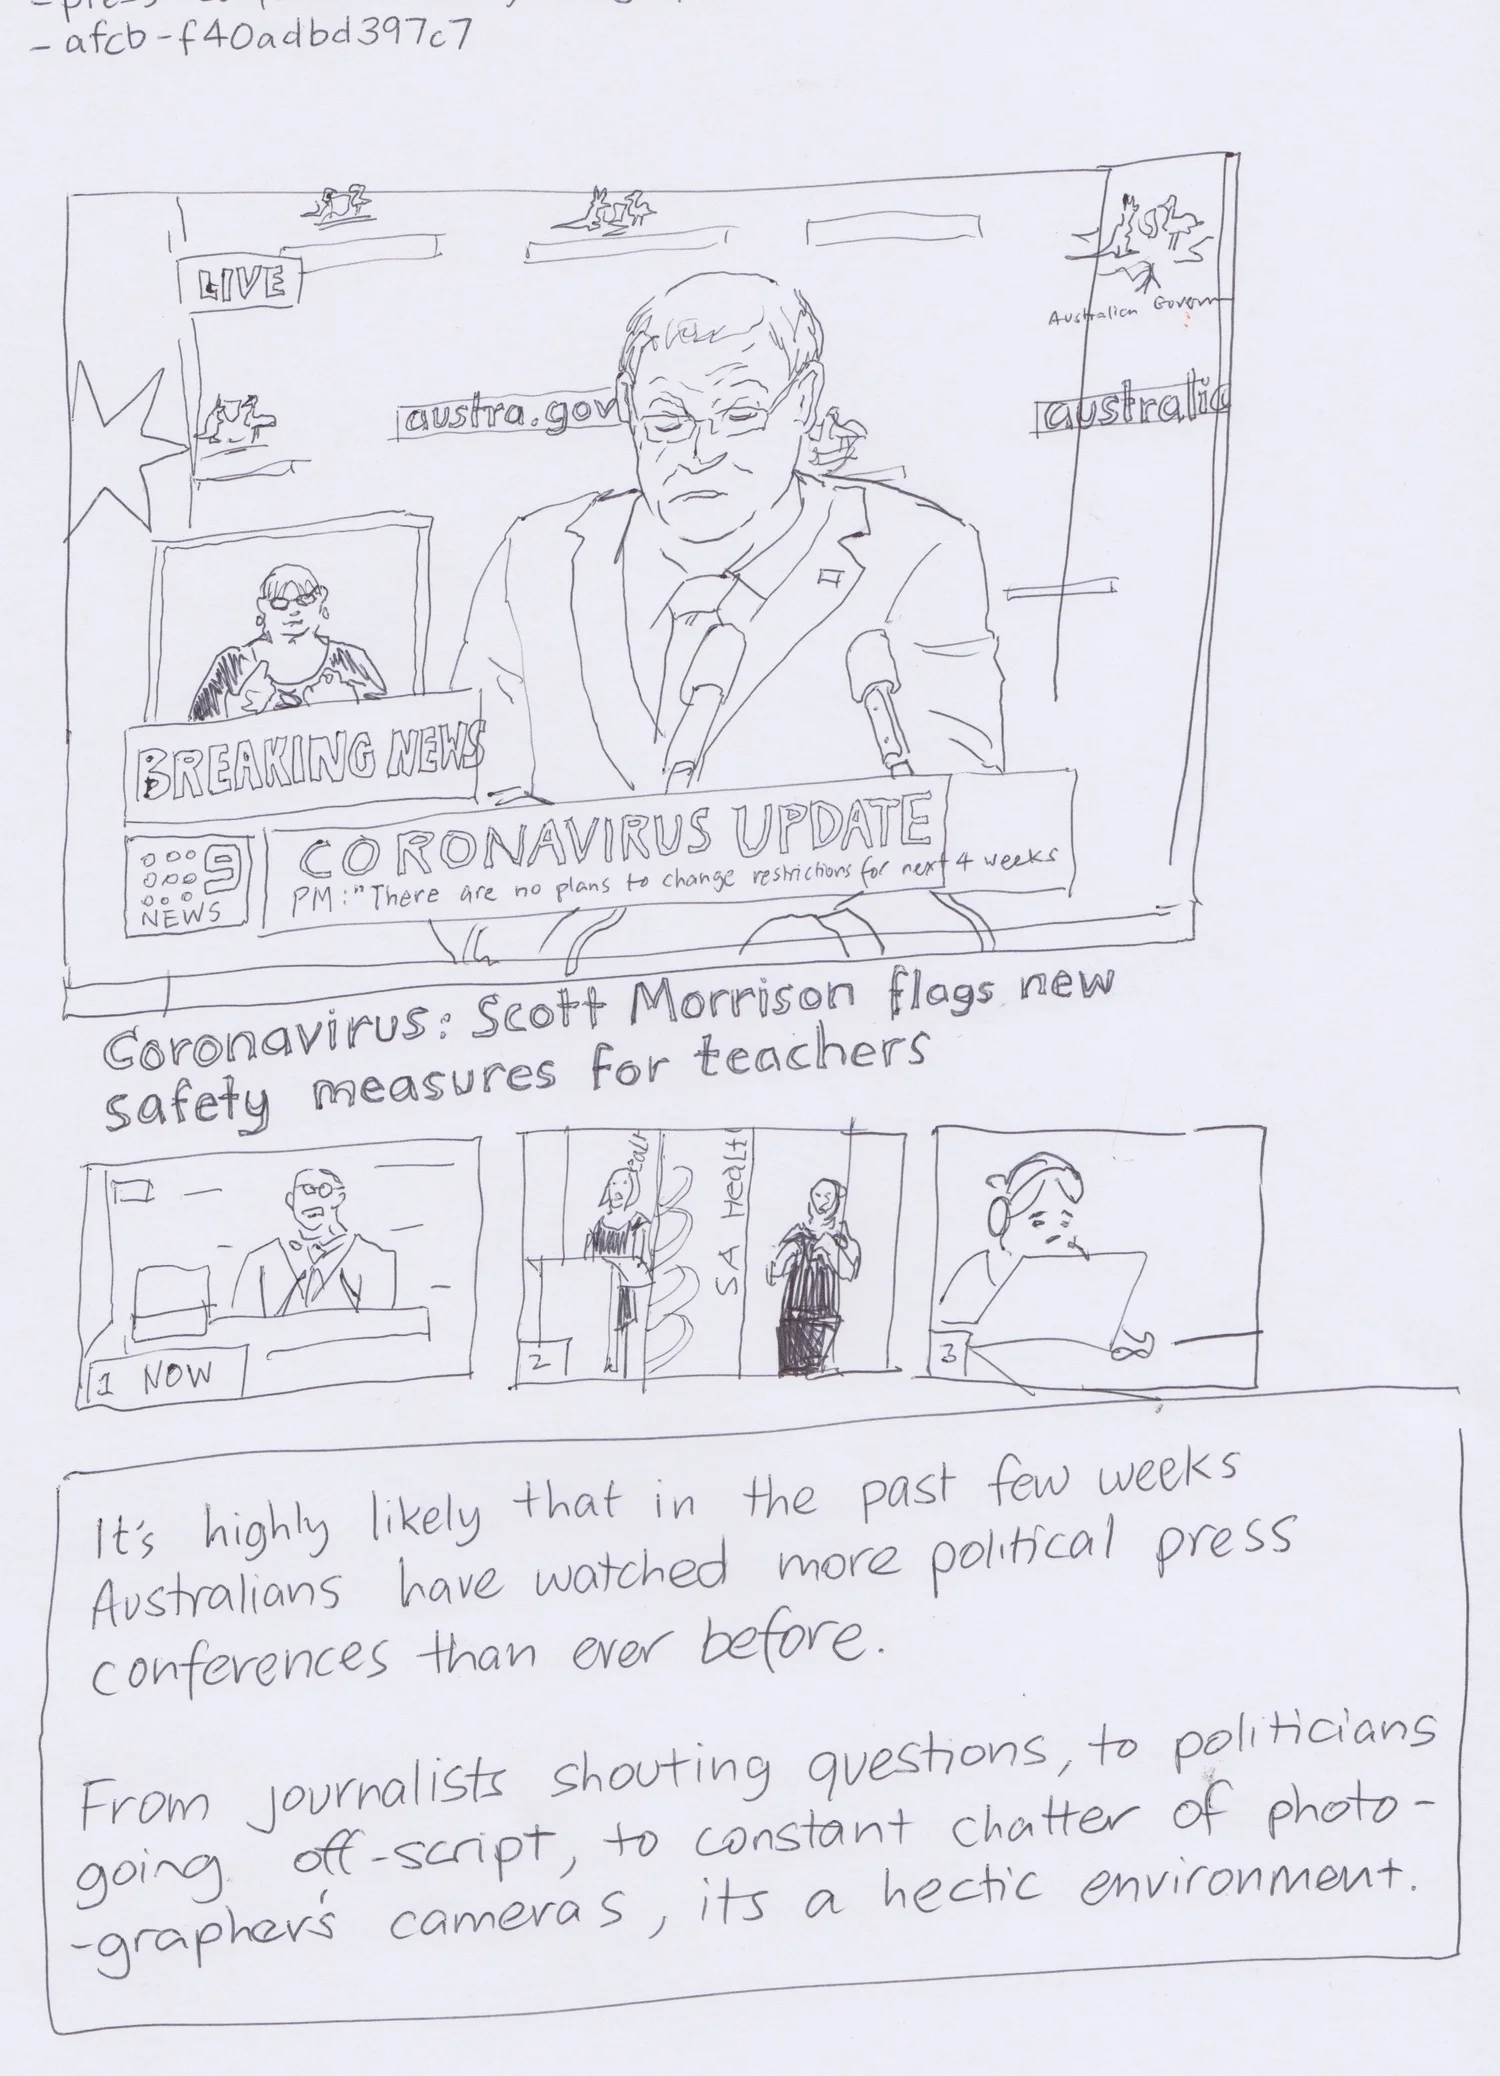 - afcb-f40adbd397c7
LIVE
Australian Govern
austra.gov
australia
BREAKING NEWS
9
NEWS
CORONAVIRUS UPDATE
PM: "There are no plans to change restrictions for next 4 weeks
Coronavirus: Scott Morrison flags new
safety measures for teachers
1 NOW
2
SA Health
3
It's highly likely that in the past few weeks
Australians have watched more political press
conferences than ever before.
From journalists shouting questions, to politicians
going off-script, to constant chatter of photo-
-grapher's cameras, its a hectic environment.